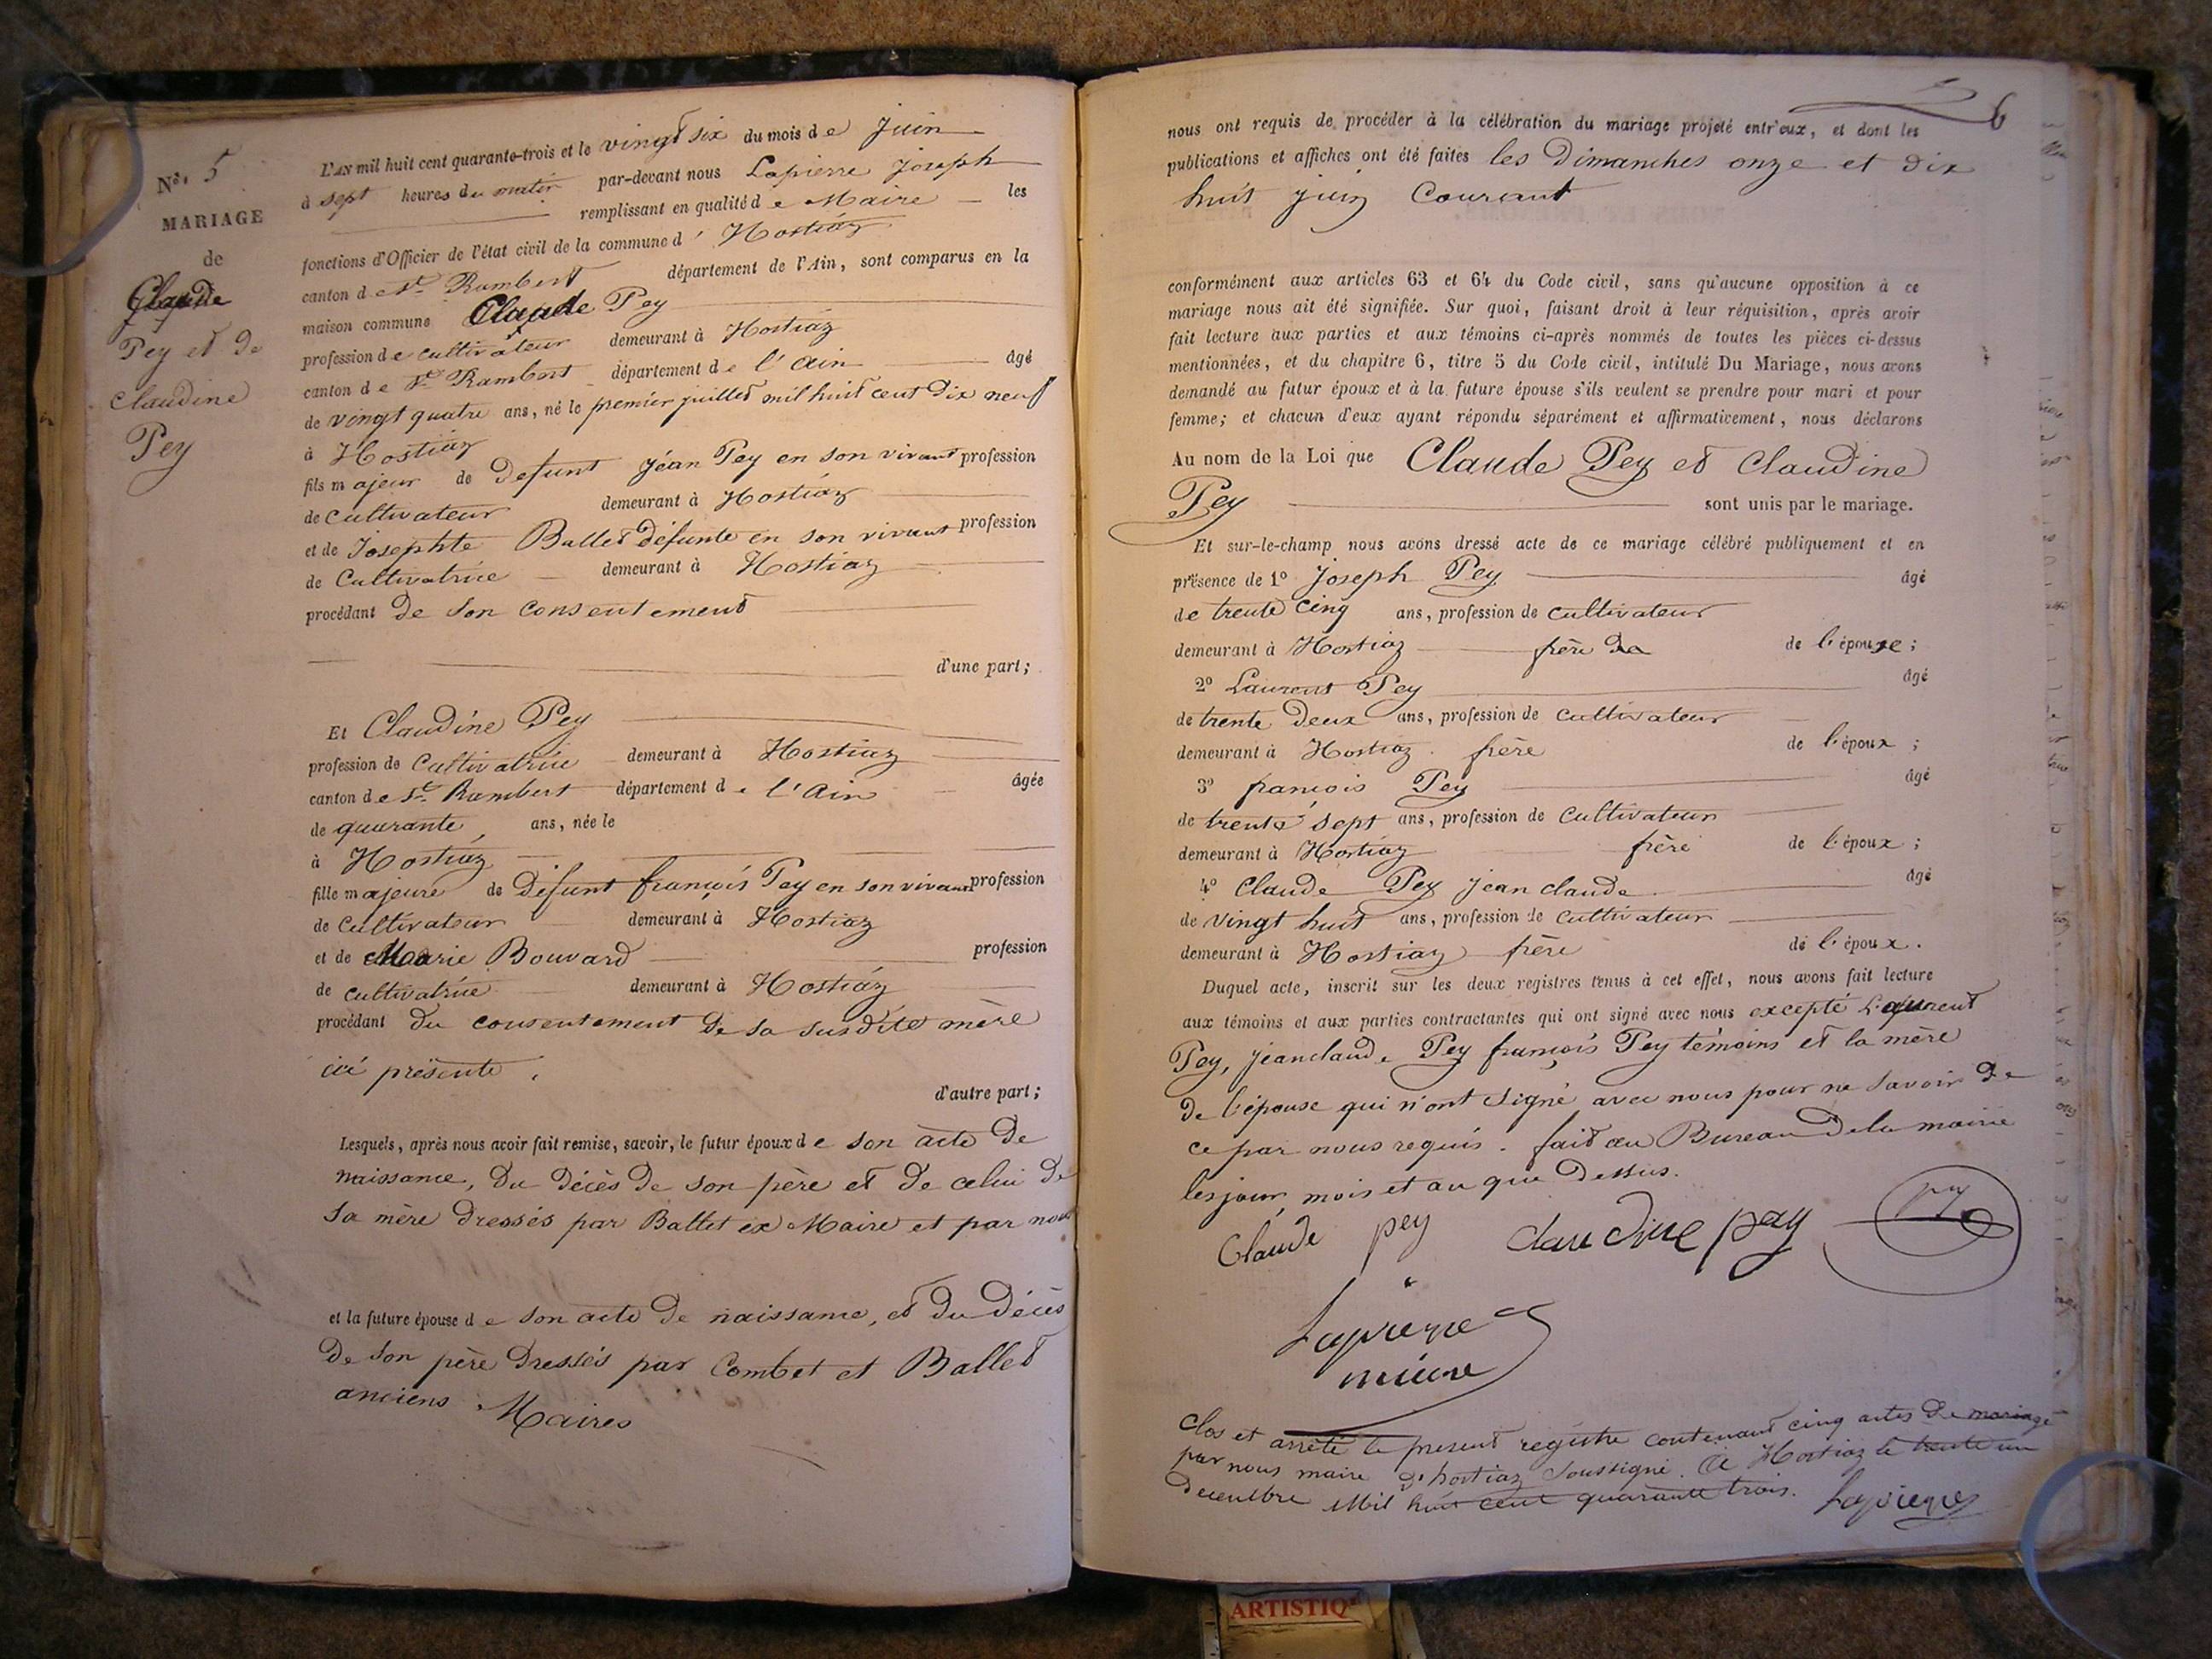 No. 5
MARIAGE
de
Claude
Pey et de
Claudine
Pey
L'AN mil huit cent quarante-trois et le vingt six du mois de Juin
à sept heures du matin par-devant nous Lapierre Joseph
remplissant en qualité de Maire les
fonctions d'Officier de l'état civil de la commune d' Hostiaz
canton de St. Rambert département de l'Ain, sont comparus en la
maison commune Claude Pey
profession de cultivateur demeurant à Hostiaz
canton de St. Rambert département de l'Ain âgé
de vingt quatre ans, né le premier juillet mil huit cent dix neuf
à Hostiaz
fils majeur de Defunt Jean Pey en son vivant profession
de cultivateur demeurant à Hostiaz
et de Josephte Ballet Défunte en son vivant profession
de Cultivatrice demeurant à Hostiaz
procédant de son consentement
d'une part;
Et Claudine Pey
profession de Cultivatrice demeurant à Hostiaz
canton de St. Rambert département de l'Ain âgée
de quarante ans, née le
à Hostiaz
fille majeure de Défunt françois Pey en son vivant profession
de Cultivateur demeurant à Hostiaz
et de Marie Bouvard profession
de cultivatrice demeurant à Hostiaz
procédant du consentement de sa susdite mère
ici présente.
d'autre part;
Lesquels, après nous avoir fait remise, savoir, le futur époux de son acte de
naissance, du décès de son père et de celui de
sa mère dressés par Ballet ex Maire et par nous
et la future épouse de son acte de naissance, et du décès
de son père dressés par Combet et Ballet
anciens Maires
6
nous ont requis de procéder à la célébration du mariage projeté entr'eux, et dont les
publications et affiches ont été faites les Dimanches onze et dix
huit juin Courant
conformément aux articles 63 et 64 du Code civil, sans qu'aucune opposition à ce
mariage nous ait été signifiée. Sur quoi, faisant droit à leur réquisition, après avoir
fait lecture aux parties et aux témoins ci-après nommés de toutes les pièces ci-dessus
mentionnées, et du chapitre 6, titre 5 du Code civil, intitulé Du Mariage, nous avons
demandé au futur époux et à la future épouse s'ils veulent se prendre pour mari et pour
femme; et chacun d'eux ayant répondu séparément et affirmativement, nous déclarons
Au nom de la Loi que Claude Pey et Claudine
Pey sont unis par le mariage.
Et sur-le-champ nous avons dressé acte de ce mariage célébré publiquement et en
présence de 1º Joseph Pey âgé
de trente cinq ans, profession de cultivateur
demeurant à Hostiaz frère de l'épouse;
2º Laurent Pey âgé
de trente deux ans, profession de cultivateur
demeurant à Hostiaz frère de l'époux;
3º françois Pey âgé
de trente sept ans, profession de cultivateur
demeurant à Hostiaz frère de l'époux;
4º Claude Pey jean claude âgé
de vingt huit ans, profession de cultivateur
demeurant à Hostiaz frère de l'époux.
Duquel acte, inscrit sur les deux registres tenus à cet effet, nous avons fait lecture
aux témoins et aux parties contractantes qui ont signé avec nous excepté Laurent
Pey, jean claude Pey françois Pey témoins et la mère
de l'épouse qui n'ont signé avec nous pour ne savoir de
ce par nous requis. fait au Bureau de la mairie
les jour, mois et an que Dessus.
Claude pey claudine pey pey
Lapierre
maire
Clos et arrêté le present registre contenant cinq actes de mariage
par nous maire d'hostiaz Soussigné. A Hostiaz le trente un
decembre Mil huit cent quarante trois. Lapierre
ARTISTIQ